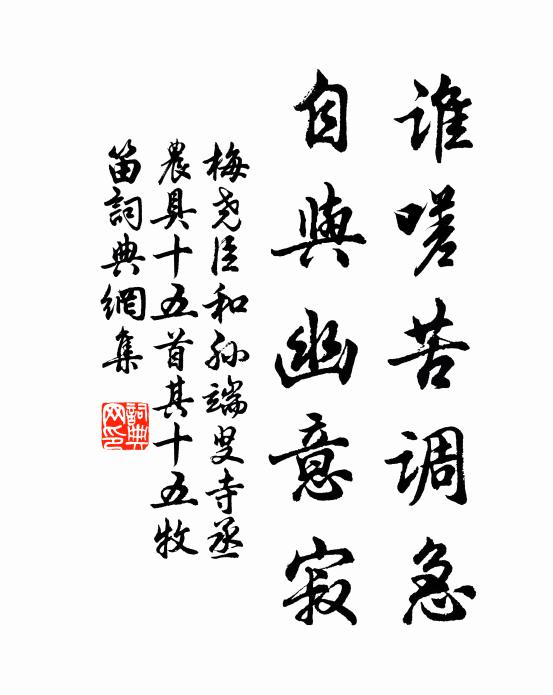 谁嗟苦调急
自與幽意寂
梅堯臣和孙端叟寺丞
農具十五首其十五牧
笛詞典網集
詞典
网印